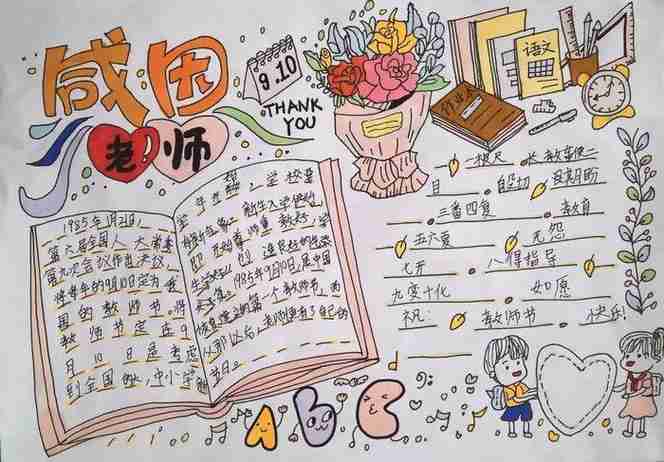 感恩
老师
9.10
THANK
YOU
语文
作业本
1985年1月21日,
第六届全国人大常委
第九次会议作出决议,
将每年的9月10日定为我
国的教师节,将
教师节定在9
月10日是考虑
到全国大、中小学
学年开始,学校要
新生入学伊始,
开始尊师重教
1985年9月10日,是中国
恢复建立的第一个教师节,为
从那以后,老师便有了自己的
节日。
一根尺 教鞭使二
目 殷切 显期盼
三番四复 教育
五六夏 无怨
七开 八得指导
九变十化 如愿
祝: 教师节 快乐!
A B C